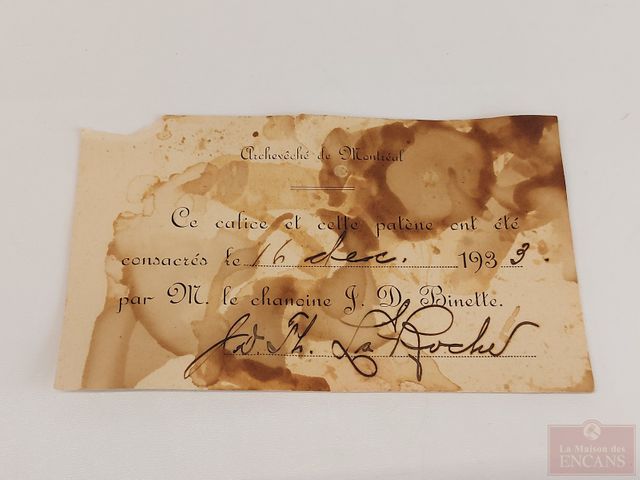 Archevêché de Montréal
Ce calice et cette patène ont été
consacrés le 16 dec. 1933.
par M. le chanoine J. D. Binette.
La Rocher
La Maison des
ENCANS